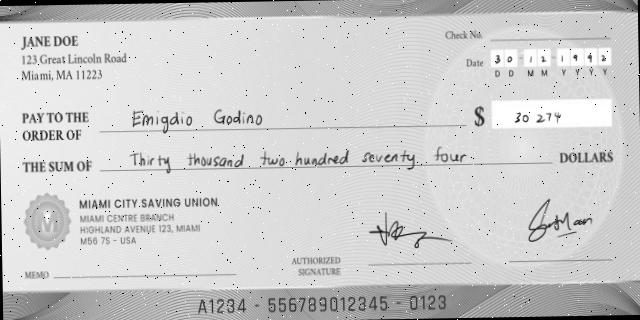 JANE DOE
123 Great Lincoln Road
Miami, MA 11223
Check No.
Date 30 12 1992
D D M M Y Y Y Y
PAY TO THE ORDER OF Emigdio Godino $ 30 274
THE SUM OF Thirty thousand two hundred seventy four DOLLARS
MIAMI CITY SAVING UNION
MIAMI CENTRE BRANCH
HIGHLAND AVENUE 123, MIAMI
M56 7S - USA
MEMO
AUTHORIZED
SIGNATURE
A1234 - 556789012345 - 0123